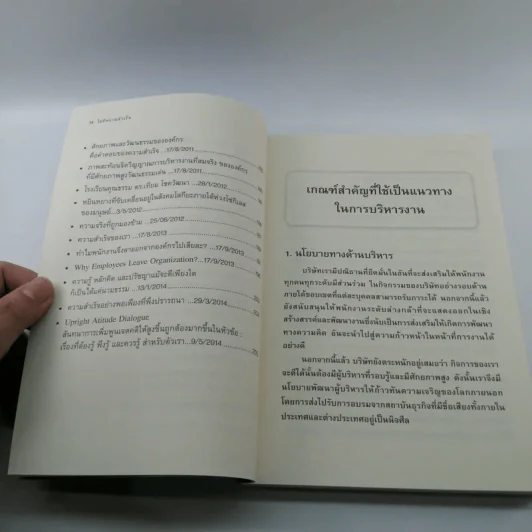 • ศักยภาพและวัฒนธรรมขององค์กร
คือคำตอบของความสำเร็จ ...17/8/2011
• ภาพสะท้อนจิตวิญญาณการบริหารงานที่สมจริง ขององค์กร
ที่มีศักยภาพสูงวัฒนธรรมเด่น ...17/8/2011
• โรงเรียนคุณธรรม ดร.เทียม โชควัฒนา ...28/1/2012
ของมนุษย์...3/5/2012
• ความจริงที่ถูกมองข้าม ...25/06/2012
• ความสำเร็จของเรา ...17/8/2013
• ทำไมพนักงานจึงลาออกจากองค์กรไปเสียละ? ...17/9/2013
• Why Employees Leave Organization?...17/9/2013
• ความรู้ หลักคิด และปรัชญาแม้จะดีเพียงใด
ก็เป็นได้แค่นามธรรม ...13/1/2014
• ความสำเร็จอย่างพอเพียงที่พึงปรารถนา ...29/3/2014
• Upright Attitude Dialogue
สนทนาการเพิ่มพูนเจตคติให้สูงขึ้นถูกต้องมากขึ้นในหัวข้อ :
เรื่องที่ต้องรู้ พึงรู้ และควรรู้ สำหรับตัวเรา...9/5/2014
เกณฑ์สำคัญที่ใช้เป็นแนวทาง
ในการบริหารงาน
1. นโยบายทางด้านบริหาร
บริษัทเรามีปณิธานที่ยึดมั่นในอันที่จะส่งเสริมให้พนักงาน
ทุกคนทุกระดับมีส่วนร่วม ในกิจกรรมของบริษัทอย่างรอบด้าน
ภายใต้ขอบเขตที่แต่ละบุคคลสามารถรับภาระได้ นอกจากนี้แล้ว
ยังสนับสนุนให้พนักงานระดับล่างกล้าที่จะแสดงออกในเชิง
สร้างสรรค์และพัฒนางานซึ่งนับเป็นการส่งเสริมให้เกิดการพัฒนา
ทางความคิด อันจะนำไปสู่ความก้าวหน้าในหน้าที่การงานได้
อย่างดี
นอกจากนี้แล้ว บริษัทยังตระหนักอยู่เสมอว่า กิจการของเรา
จะดีได้นั้นต้องมีผู้บริหารที่รอบรู้และมีศักยภาพสูง ดังนั้นเราจึงมี
นโยบายพัฒนาผู้บริหารให้ก้าวทันความเจริญของโลกภายนอก
โดยการส่งไปรับการอบรมจากสถาบันธุรกิจที่มีชื่อเสียงทั้งภายใน
ประเทศและต่างประเทศอยู่เป็นนิจศีล